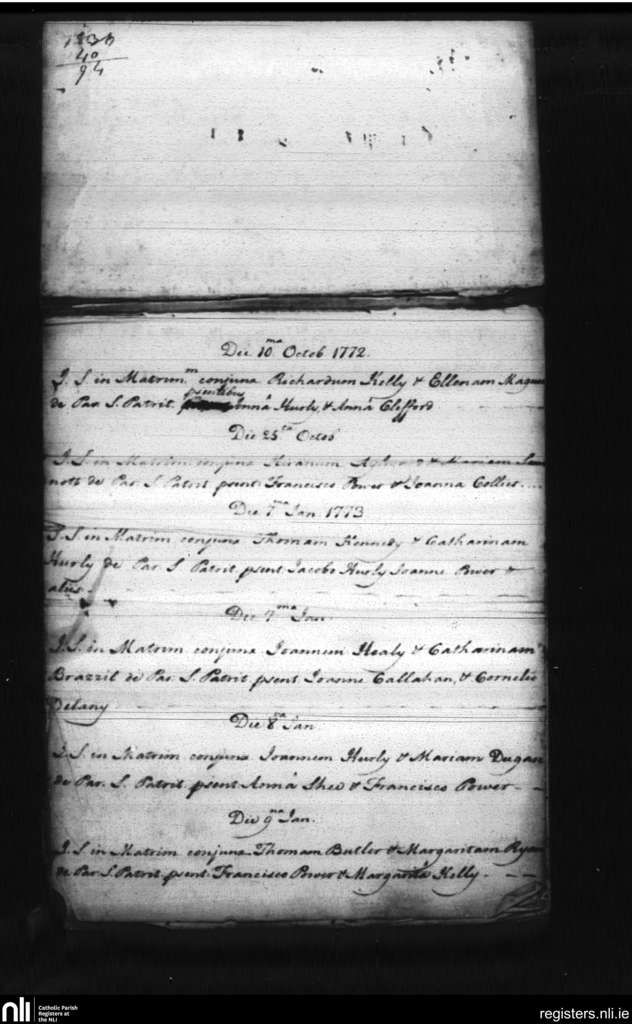 40
94
Die 10.ma Octob 1772.
J. S. in Matrim.m conjunx Richardum Kelly & Ellenam
de Par. S. Patrit. psentibus Anná Hurly, & Anná Clifford
Die 25ta Octob
J. S. in Matrim conjunx & Mariam
nott de Par. S. Patrit psent Francisco Power & Joanna Collier. ...
Die 7.ma Jan. 1773
J. S. in Matrim conjunx Thomam Kennedy & Catharinam
Hurly de Par. S. Patrit psent Jacobo Hurly Joanne Power &
aliis -
Die 7ma Jan.
J. S. in Matrim. conjunx Joannem Healy & Catharinam
Brazzil de Par. S. Patrit psent. Joanne Callahan, & Cornelio
Delany
Die 8va Jan.
J. S. in Matrim conjunx Joannem Hurly & Mariam Dugan
de Par. S. Patrit psent Anná Shea & Francisco Power - -
Die 9na Jan.
J. S. in Matrim conjunx Thomam Butler & Margaritam Ryan
de Par S. Patrit psent. Francisco Power & Margaritá Kelly - - -
nli
Catholic Parish
Registers at
the NLI
registers.nli.ie